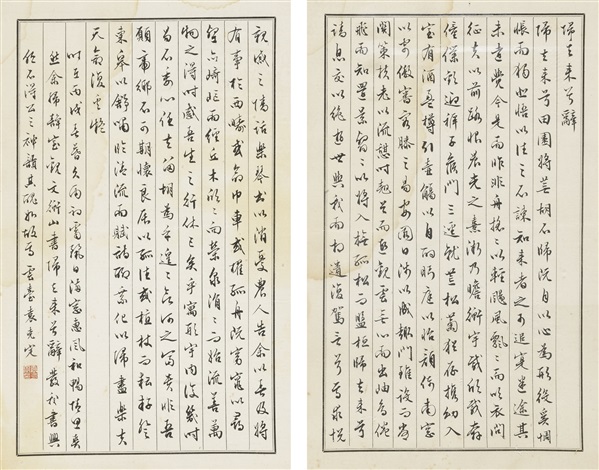 歸去來兮辭
歸去來兮田園將蕪胡不歸既自以心為形役奚惆
悵而獨悲悟以往之不諫知來者之可追實迷途其
未遠覺今是而昨非舟搖々以輕颺風飄々而吹衣問
征夫以前路恨晨光之熹微乃瞻衡宇載欣載奔
僮僕歡迎稚子候門三逕就荒松菊猶存攜幼入
室有酒盈樽引壺觴以自酌眄庭以怡顏倚南窗
以寄傲審容膝之易安園日涉以成趣門雖設而常
關策扶老以流憩時矯首而遐觀雲無心而出岫鳥倦
飛而知還景翳々以將入撫孤松而盤桓歸去來兮
請息交以絕遊世與我而相遺復駕言兮焉求悅
親戚之情話樂琴書以消憂農人告余以春及將
有事於西疇或命巾車或棹孤舟既窈窕以尋
壑亦崎嶇而經丘木欣々而榮泉涓々而始流善萬
物之得時感吾生之行休已矣乎寓形宇內復幾時
曷不委心任去留胡為乎遑々兮欲何之富貴非吾
願帝鄉不可期懷良辰以孤往或植杖而耘耔登
東皋以舒嘯臨清流而賦詩聊乘化以歸盡樂夫
天命復奚疑
丙戌春久雨初霽日窗惠風和暢情思奐
然余歸室觀文衡山書歸去來兮辭發於書興
但不得公之神韻其醜如故焉雲臺袁克定